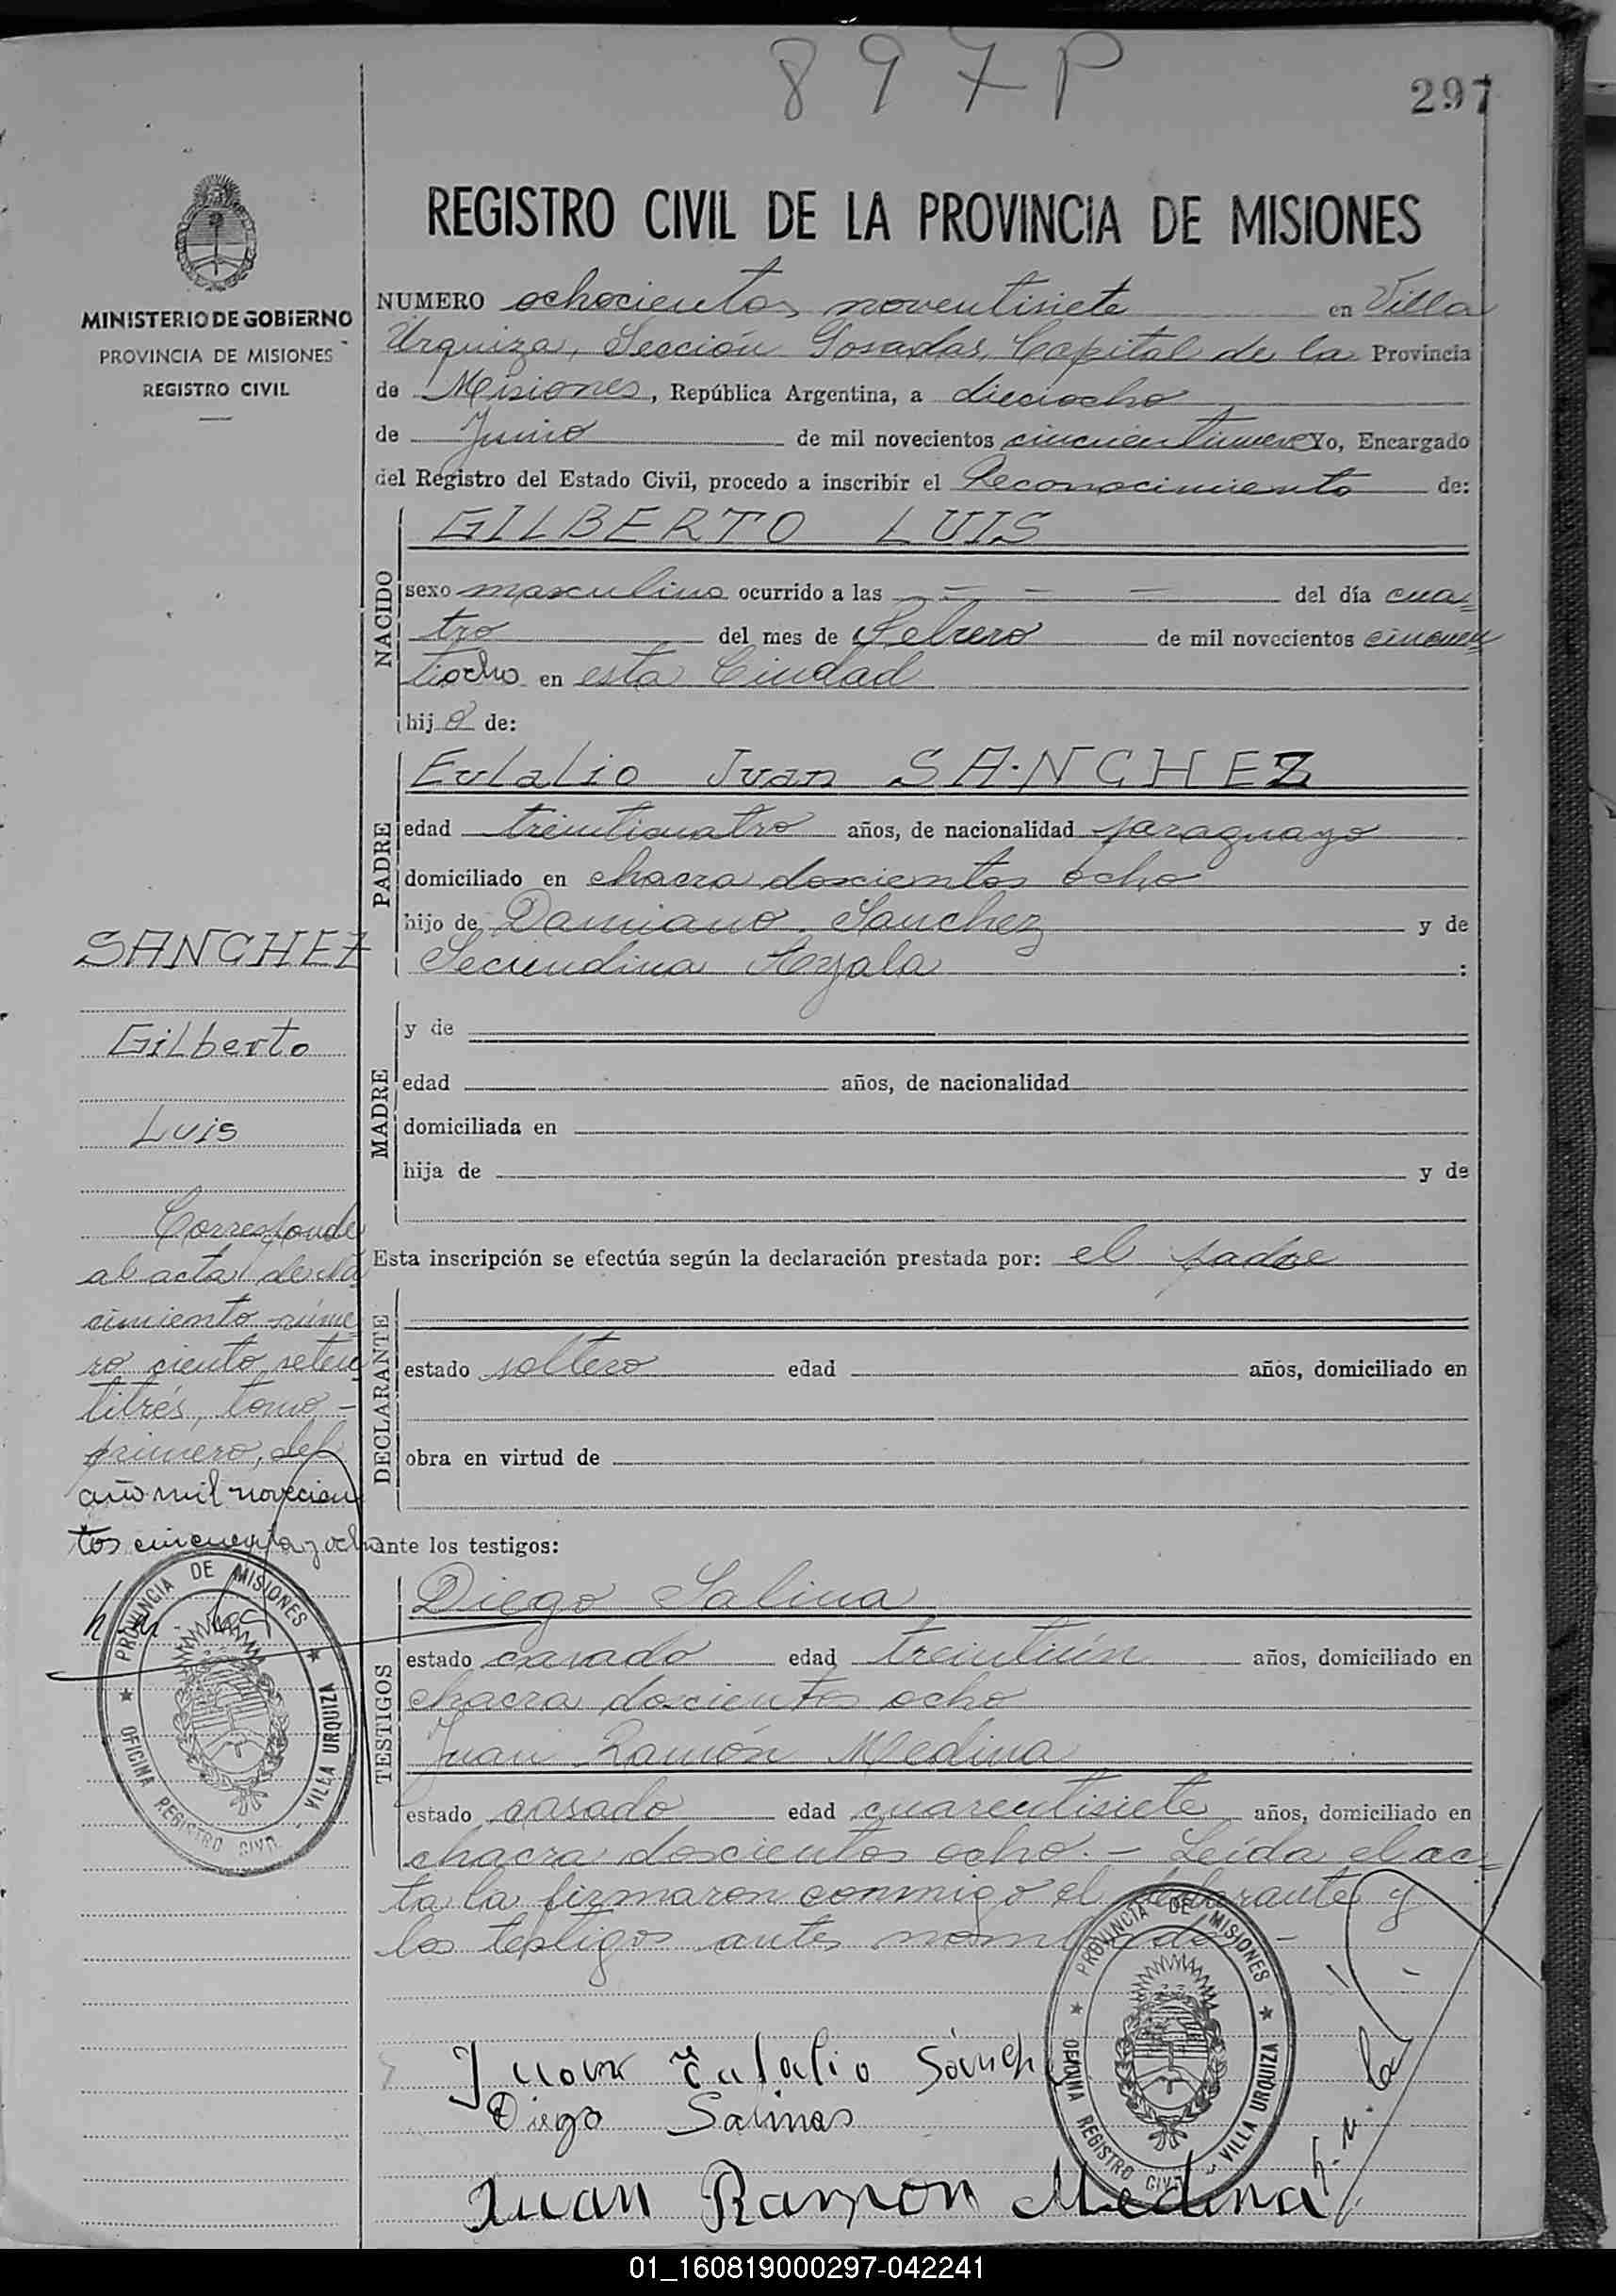 897 P
297
REGISTRO CIVIL DE LA PROVINCIA DE MISIONES
MINISTERIO DE GOBIERNO
PROVINCIA DE MISIONES
REGISTRO CIVIL
NUMERO ochocientos noventisiete en Villa
Urquiza, Sección Posadas, Capital de la Provincia
de Misiones, República Argentina, a dieciocho
de Junio de mil novecientos cincuentinueve Yo, Encargado
del Registro del Estado Civil, procedo a inscribir el Reconocimiento de:
NACIDO
GILBERTO LUIS
sexo masculino ocurrido a las - - - del día cua=
tro del mes de Febrero de mil novecientos cincuen
tiocho en esta Ciudad
hij o de:
PADRE
Eulalio Juan SANCHEZ
edad trenticuatro años, de nacionalidad paraguayo
domiciliado en chacra doscientos ocho
hijo de Damiano Sanchez y de
Secundina Ayala :
MADRE
y de
edad años, de nacionalidad
domiciliada en
hija de y de
Esta inscripción se efectúa según la declaración prestada por: el padre
DECLARANTE
estado soltero edad años, domiciliado en
obra en virtud de
ante los testigos:
TESTIGOS
Diego Salina
estado casado edad treintiún años, domiciliado en
chacra doscientos ocho
Juan Ramón Medina
estado casado edad cuarentisiete años, domiciliado en
chacra doscientos ocho.- Leída el ac=
ta la firmaron conmigo el declarante y
los testigos antes nombrados.-
SANCHEZ
Gilberto
Luis
Corresponde
al acta de na
cimiento núme
ro ciento seten
titrés, tomo -
primero, del
año mil novecien
tos cincuenta y ocho
PROVINCIA DE MISIONES
OFICINA REGISTRO CIVIL
VILLA URQUIZA
Juan Eulalio Sánch
Diego Salinas
Juan Ramon Medina
PROVINCIA DE MISIONES
OFICINA REGISTRO CIVIL
VILLA URQUIZA
01_160819000297-042241